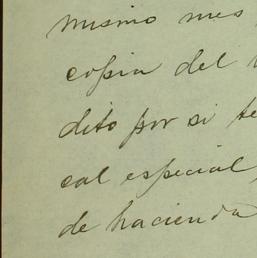 mismo mes
copia del
dito por si te
cal especial,
de hacienda